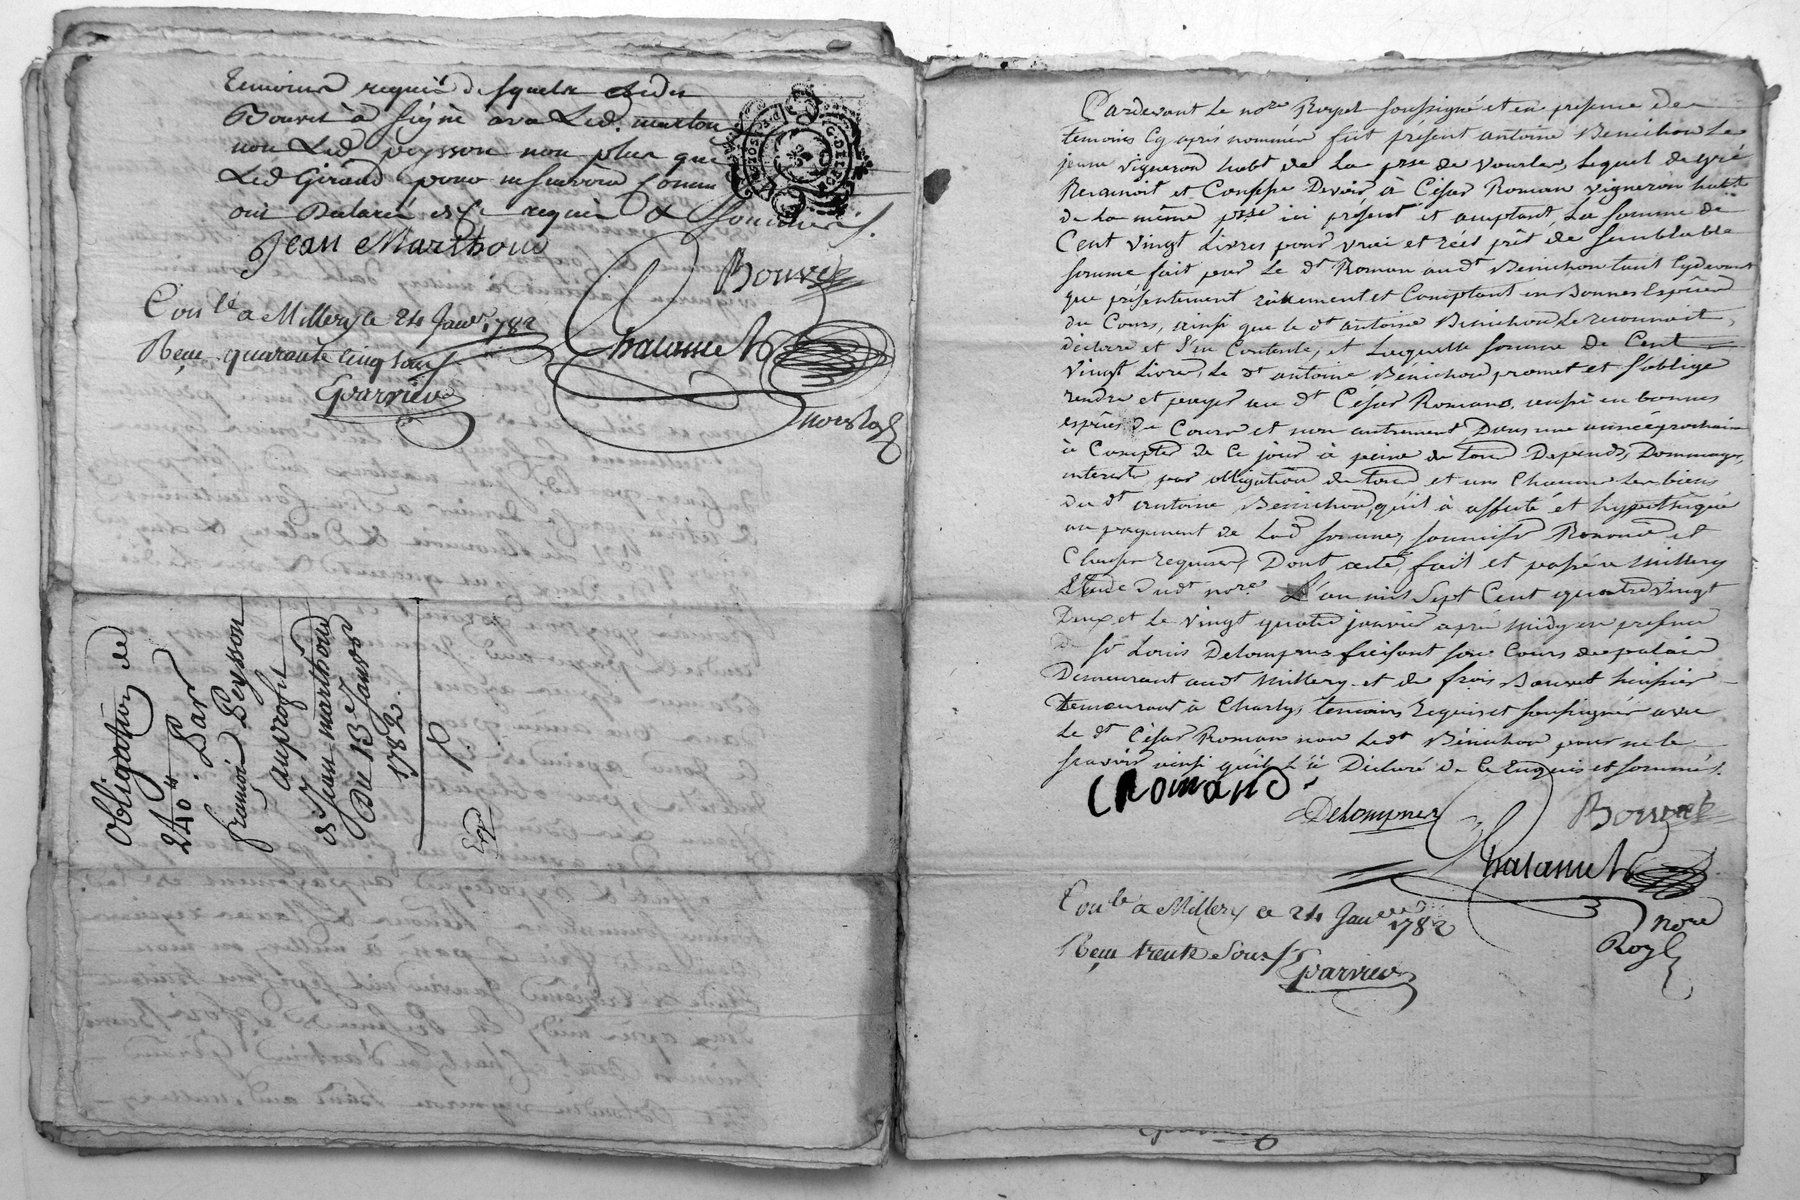 temoins requis desquels ledit
Bouvet à signé avec Led. marton
non Led peysson non plus que
Led Giraud pour ne scavoir comm
ont Declaré de ce requis & sommés.
Jean Marthoud
Bouvet
Con.lé a Millery le 24 Janv. 1782
Reçu quarante cinq sous
Chalamel
Gparvieux
Obligation de
240.tt Par
françois Peysson
au profit
de Jean marthoud
Du 13.e Janvier
1782.
Exp
Pardevant Le no.re Royal soussigné et en presence des
temoins Cy après nommés fût present antoine Benichon Le
jeune vigneron habt de La psse de Vourles, Lequel de gré
Reconnoit et Confesse Devoir à César Roman vigneron habt
de La même psse ici présent et aceptant La somme de
Cent vingt Livres pour vrai et réel prêt de semblable
somme fait par Le dt Roman audt Benichon tant Cydevant
que présentement réellement et Comptant en Bonnes Espèces
du Cours, ainsi que le dt antoine Benichon Le reconnoit,
déclare et s'en Contente, et Laquelle somme de Cent
vingt Livres, Le dt antoine Bénichon promet et s'oblige
rendre et payer au dt César Roman, aussi en bonnes
espèces du Cours et non autrement Dans une année prochaine
à Compter de Ce jour à peine de tous Depends, Dommages,
interets par obligation de tous et uns Chacuns Les biens
du dt antoine Benichon, qu'il à affecté et hypothéqué
au payement de Lad somme, soumis Renoncé et
Clauses requises, Dont acte fait et passé a Millery
Etude dudt no.re L'an mil Sept Cent quatre vingt
Deux et Le vingt quatre janvier après midy en presence
de sr Louis Delompnes faisant son Cours de palais
Demeurant audt Millery et de frois Bouvet huissier
Demeurant à Charly, temoins Requis et soussignés avec
Le dt César Roman non Ledt Bénichon pour ne le
scavoir ainsi qu'il L'à Déclaré de Ce Enquis et sommé.
CRomand
Delompnes
Bouvet
Chalamel
nore
Royl
Con.lé a Millery ce 24 Janvier 1782
Reçu trente sous
Gparvieux